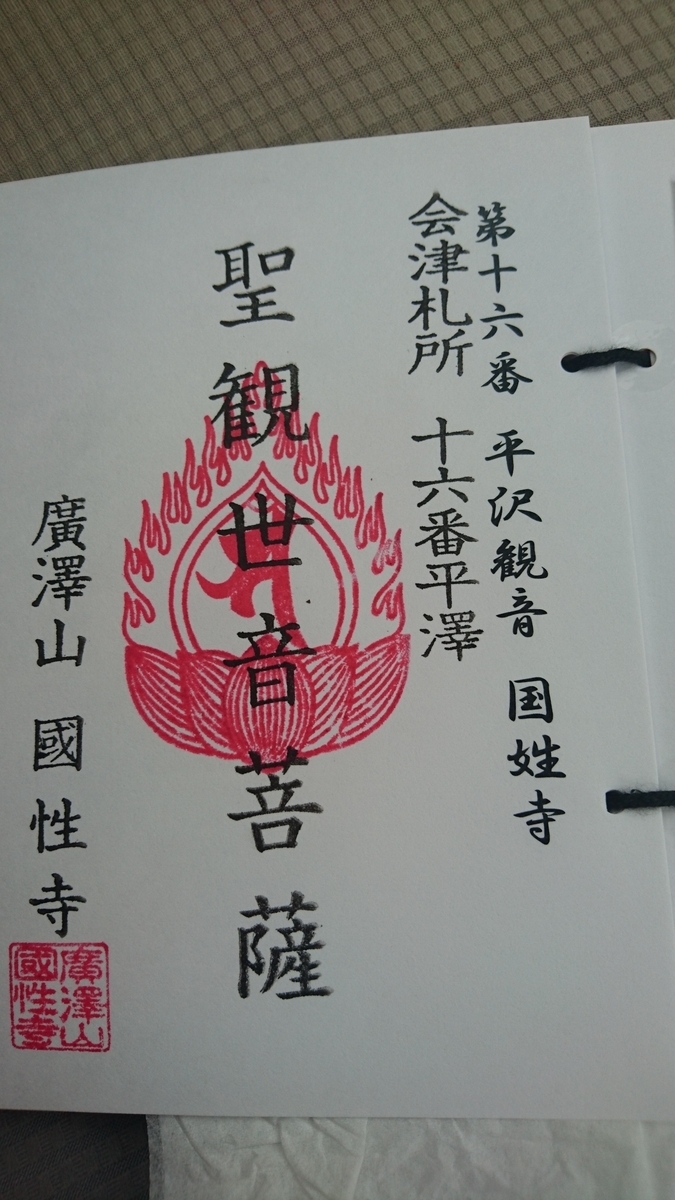 第十六番 平沢観音 国姓寺
会津札所 十六番平澤
聖観世音菩薩
廣澤山 國性寺
廣澤山
國性寺